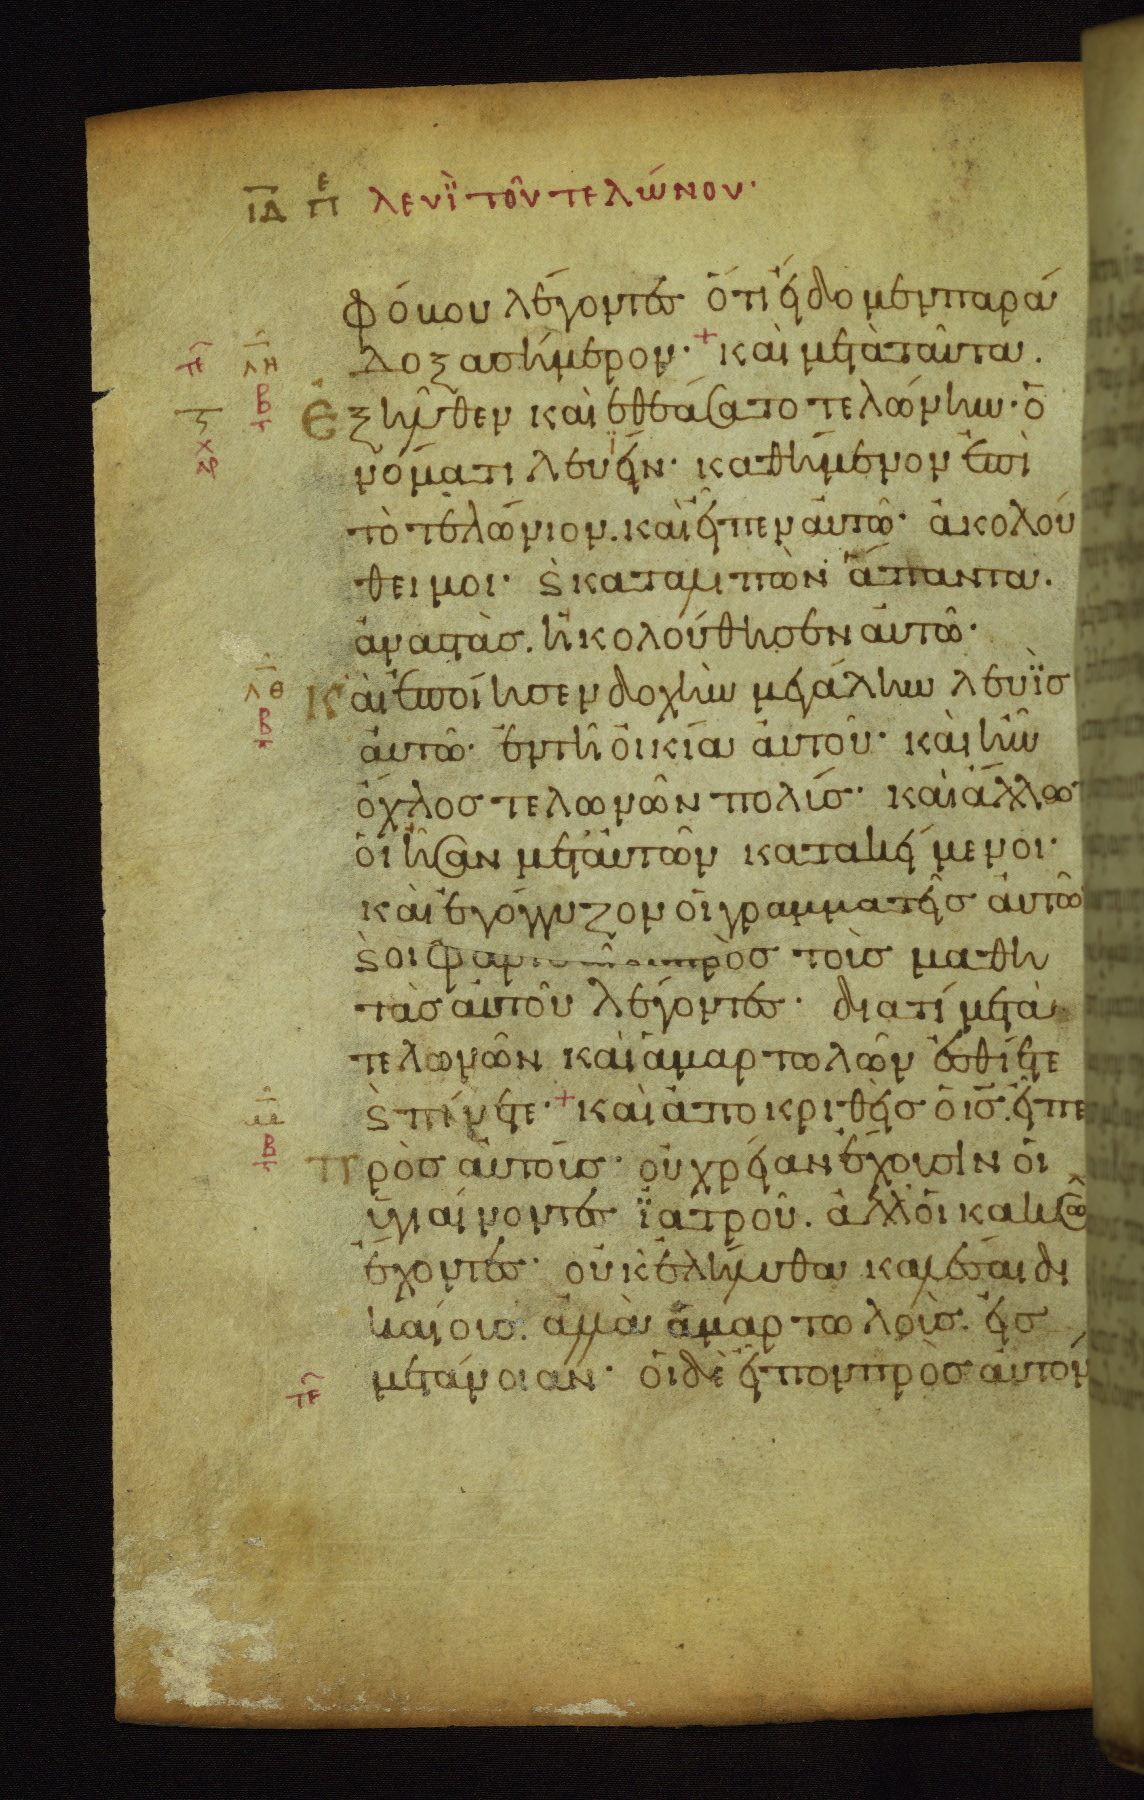 ΙΔ πε λευῒ τὸν τελώνον·
φόβου λέγοντες ὅτι εἴδομεν παρά
δοξα σήμερον· + καὶ μετὰ ταῦτα.
τε λη β
Ἐξῆλθεν καὶ ἐθεάσατο τελώνην· ὀ
νόματι λευῒν· καθήμενον ἐπὶ
τὸ τελώνιον. καὶ εἶπεν αὐτῶ· ἀκολού
θει μοι· ϗ καταλιπὼν ἅπαντα.
ἀναστὰσ. ἠκολούθησεν αὐτῶ·
λθ β
Καὶ ἐποίησεν δοχὴν μεγάλην λευῒσ
αὐτῶ· ἐν τῆ οἰκία αὐτοῦ· καὶ ἦν
ὄχλοσ τελωνῶν πολύσ· καὶ ἄλλων
οἳ ἦσαν μετ αὐτῶν κατακείμενοι·
καὶ ἐγόγγυζον οἱ γραμματεῖσ αὐτῶν
ϗ οι φαρισαῖοι πρὸσ τοὺσ μαθη
τὰσ αὐτοῦ λέγοντες· διατί μετὰ
τελωνῶν καὶ ἁμαρτωλῶν ἐσθίετε
ϗ πίνετε· + καὶ ἀποκριθεὶσ ὁ ισ. εἶπε
μ β
πρὸσ αὐτούσ· οὐ χρείαν ἔχουσιν οἱ
ὑγιαίνοντες ἰατροῦ. ἀλλ οἱ κακῶσ
ἔχοντες· οὐκ ἐλήλυθα καλέσαι δι
καίουσ. ἀλλὰ ἁμαρτωλοὺσ. εἰσ
μετάνοιαν· οἱ δὲ εἶπον πρὸσ αὐτόν
τε